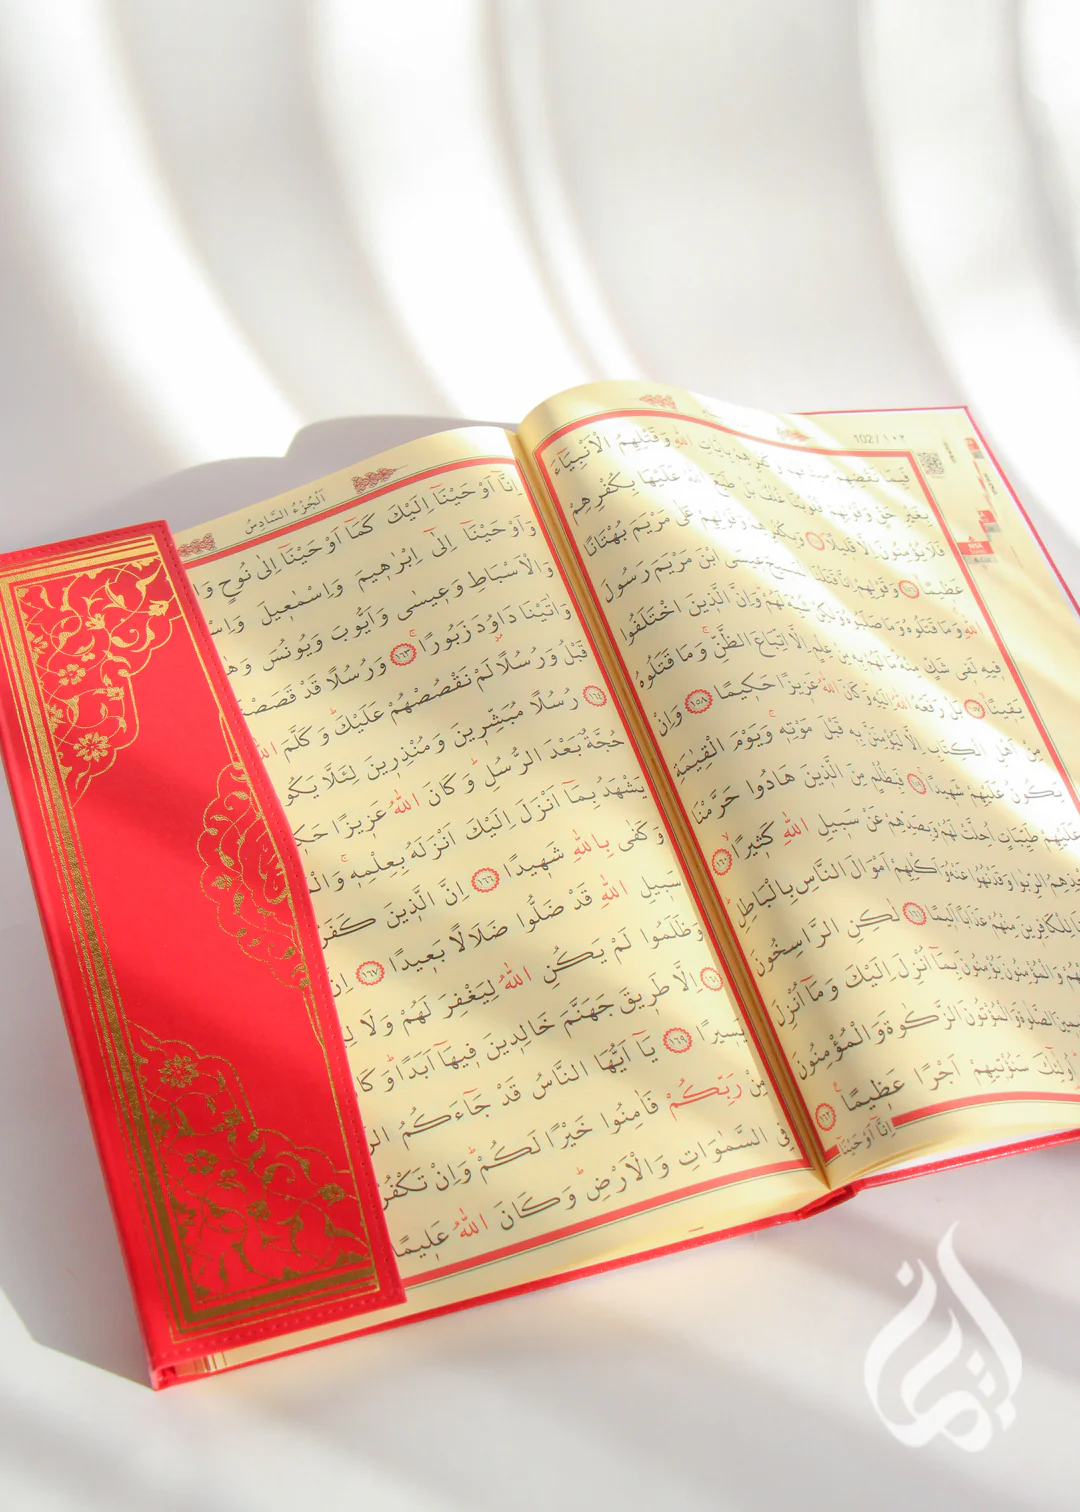 102 / ١٠٢
فَبِمَا نَقْضِهِمْ مِيثَاقَهُمْ وَكُفْرِهِمْ بِاٰيَاتِ اللّٰهِ وَقَتْلِهِمُ الْاَنْبِيَٓاءَ
بِغَيْرِ حَقٍّ وَقَوْلِهِمْ قُلُوبُنَا غُلْفٌ بَلْ طَبَعَ اللّٰهُ عَلَيْهَا بِكُفْرِهِمْ
فَلَا يُؤْمِنُونَ اِلَّا قَلِيلًا وَبِكُفْرِهِمْ وَقَوْلِهِمْ عَلٰى مَرْيَمَ بُهْتَانًا
عَظِيمًا وَقَوْلِهِمْ اِنَّا قَتَلْنَا الْمَسِيحَ عِيسَى ابْنَ مَرْيَمَ رَسُولَ
اللّٰهِ وَمَا قَتَلُوهُ وَمَا صَلَبُوهُ وَلٰكِنْ شُبِّهَ لَهُمْ وَاِنَّ الَّذِينَ اخْتَلَفُوا
فِيهِ لَفِى شَكٍّ مِنْهُ مَا لَهُمْ بِهِ مِنْ عِلْمٍ اِلَّا اتِّبَاعَ الظَّنِّ وَمَا قَتَلُوهُ
يَقِينًا ١٥٧ بَلْ رَفَعَهُ اللّٰهُ اِلَيْهِ وَكَانَ اللّٰهُ عَزِيزًا حَكِيمًا ١٥٨ وَاِنْ
مِنْ اَهْلِ الْكِتَابِ اِلَّا لَيُؤْمِنَنَّ بِهِ قَبْلَ مَوْتِهِ وَيَوْمَ الْقِيٰمَةِ
يَكُونُ عَلَيْهِمْ شَهِيدًا ١٥٩ فَبِظُلْمٍ مِنَ الَّذِينَ هَادُوا حَرَّمْنَا
عَلَيْهِمْ طَيِّبَاتٍ اُحِلَّتْ لَهُمْ وَبِصَدِّهِمْ عَنْ سَبِيلِ اللّٰهِ كَثِيرًا ١٦٠
الرِّبٰوا وَقَدْ نُهُوا عَنْهُ وَاَكْلِهِمْ اَمْوَالَ النَّاسِ بِالْبَاطِلِ
لِلْكَافِرِينَ مِنْهُمْ عَذَابًا اَلِيمًا ١٦١ لٰكِنِ الرَّاسِخُونَ
وَالْمُؤْمِنُونَ يُؤْمِنُونَ بِمَٓا اُنْزِلَ اِلَيْكَ وَمَٓا اُنْزِلَ
الصَّلٰوةَ وَالْمُؤْتُونَ الزَّكٰوةَ وَالْمُؤْمِنُونَ
اُو۬لٰٓئِكَ سَنُؤْتِيهِمْ اَجْرًا عَظِيمًا ١٦٢
اِنَّٓا اَوْحَيْنَٓا
اَلْجُزْءُ السَّادِسُ
اِنَّٓا اَوْحَيْنَٓا اِلَيْكَ كَمَٓا اَوْحَيْنَٓا اِلٰى نُوحٍ
وَاَوْحَيْنَٓا اِلٰٓى اِبْرٰهِيمَ وَاِسْمٰعِيلَ
وَالْاَسْبَاطِ وَعِيسٰى وَاَيُّوبَ وَيُونُسَ
وَاٰتَيْنَا دَاوُ۫دَ زَبُورًا ١٦٣ وَرُسُلًا قَدْ
قَبْلُ وَرُسُلًا لَمْ نَقْصُصْهُمْ عَلَيْكَ وَكَلَّمَ
١٦٤ رُسُلًا مُبَشِّرِينَ وَمُنْذِرِينَ لِئَلَّا
حُجَّةٌ بَعْدَ الرُّسُلِ وَكَانَ اللّٰهُ عَزِيزًا
يَشْهَدُ بِمَٓا اَنْزَلَ اِلَيْكَ اَنْزَلَهُ بِعِلْمِهِ
وَكَفٰى بِاللّٰهِ شَهِيدًا ١٦٦ اِنَّ الَّذِينَ
سَبِيلِ اللّٰهِ قَدْ ضَلُّوا ضَلَالًا بَعِيدًا ١٦٧
وَظَلَمُوا لَمْ يَكُنِ اللّٰهُ لِيَغْفِرَ لَهُمْ وَلَا
١٦٨ اِلَّا طَرِيقَ جَهَنَّمَ خَالِدِينَ فِيهَٓا اَبَدًا
يَسِيرًا ١٦٩ يَٓا اَيُّهَا النَّاسُ قَدْ جَٓاءَكُمُ
مِنْ رَبِّكُمْ فَاٰمِنُوا خَيْرًا لَكُمْ وَاِنْ
فِى السَّمٰوَاتِ وَالْاَرْضِ وَكَانَ اللّٰهُ عَلِيمًا